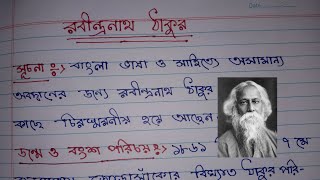 Date
রবীন্দ্রনাথ ঠাকুর
সূচনা :> বাংলা ভাষা ও সাহিত্যে অসামান্য
অবদানের জন্যে রবীন্দ্রনাথ ঠাকুর
কাছে চিরস্মরনীয় হয়ে আছেন
জন্ম ও বংশ পরিচয় :> ১৮৬১ ৭ মে
বিখ্যাত ঠাকুর পরি-